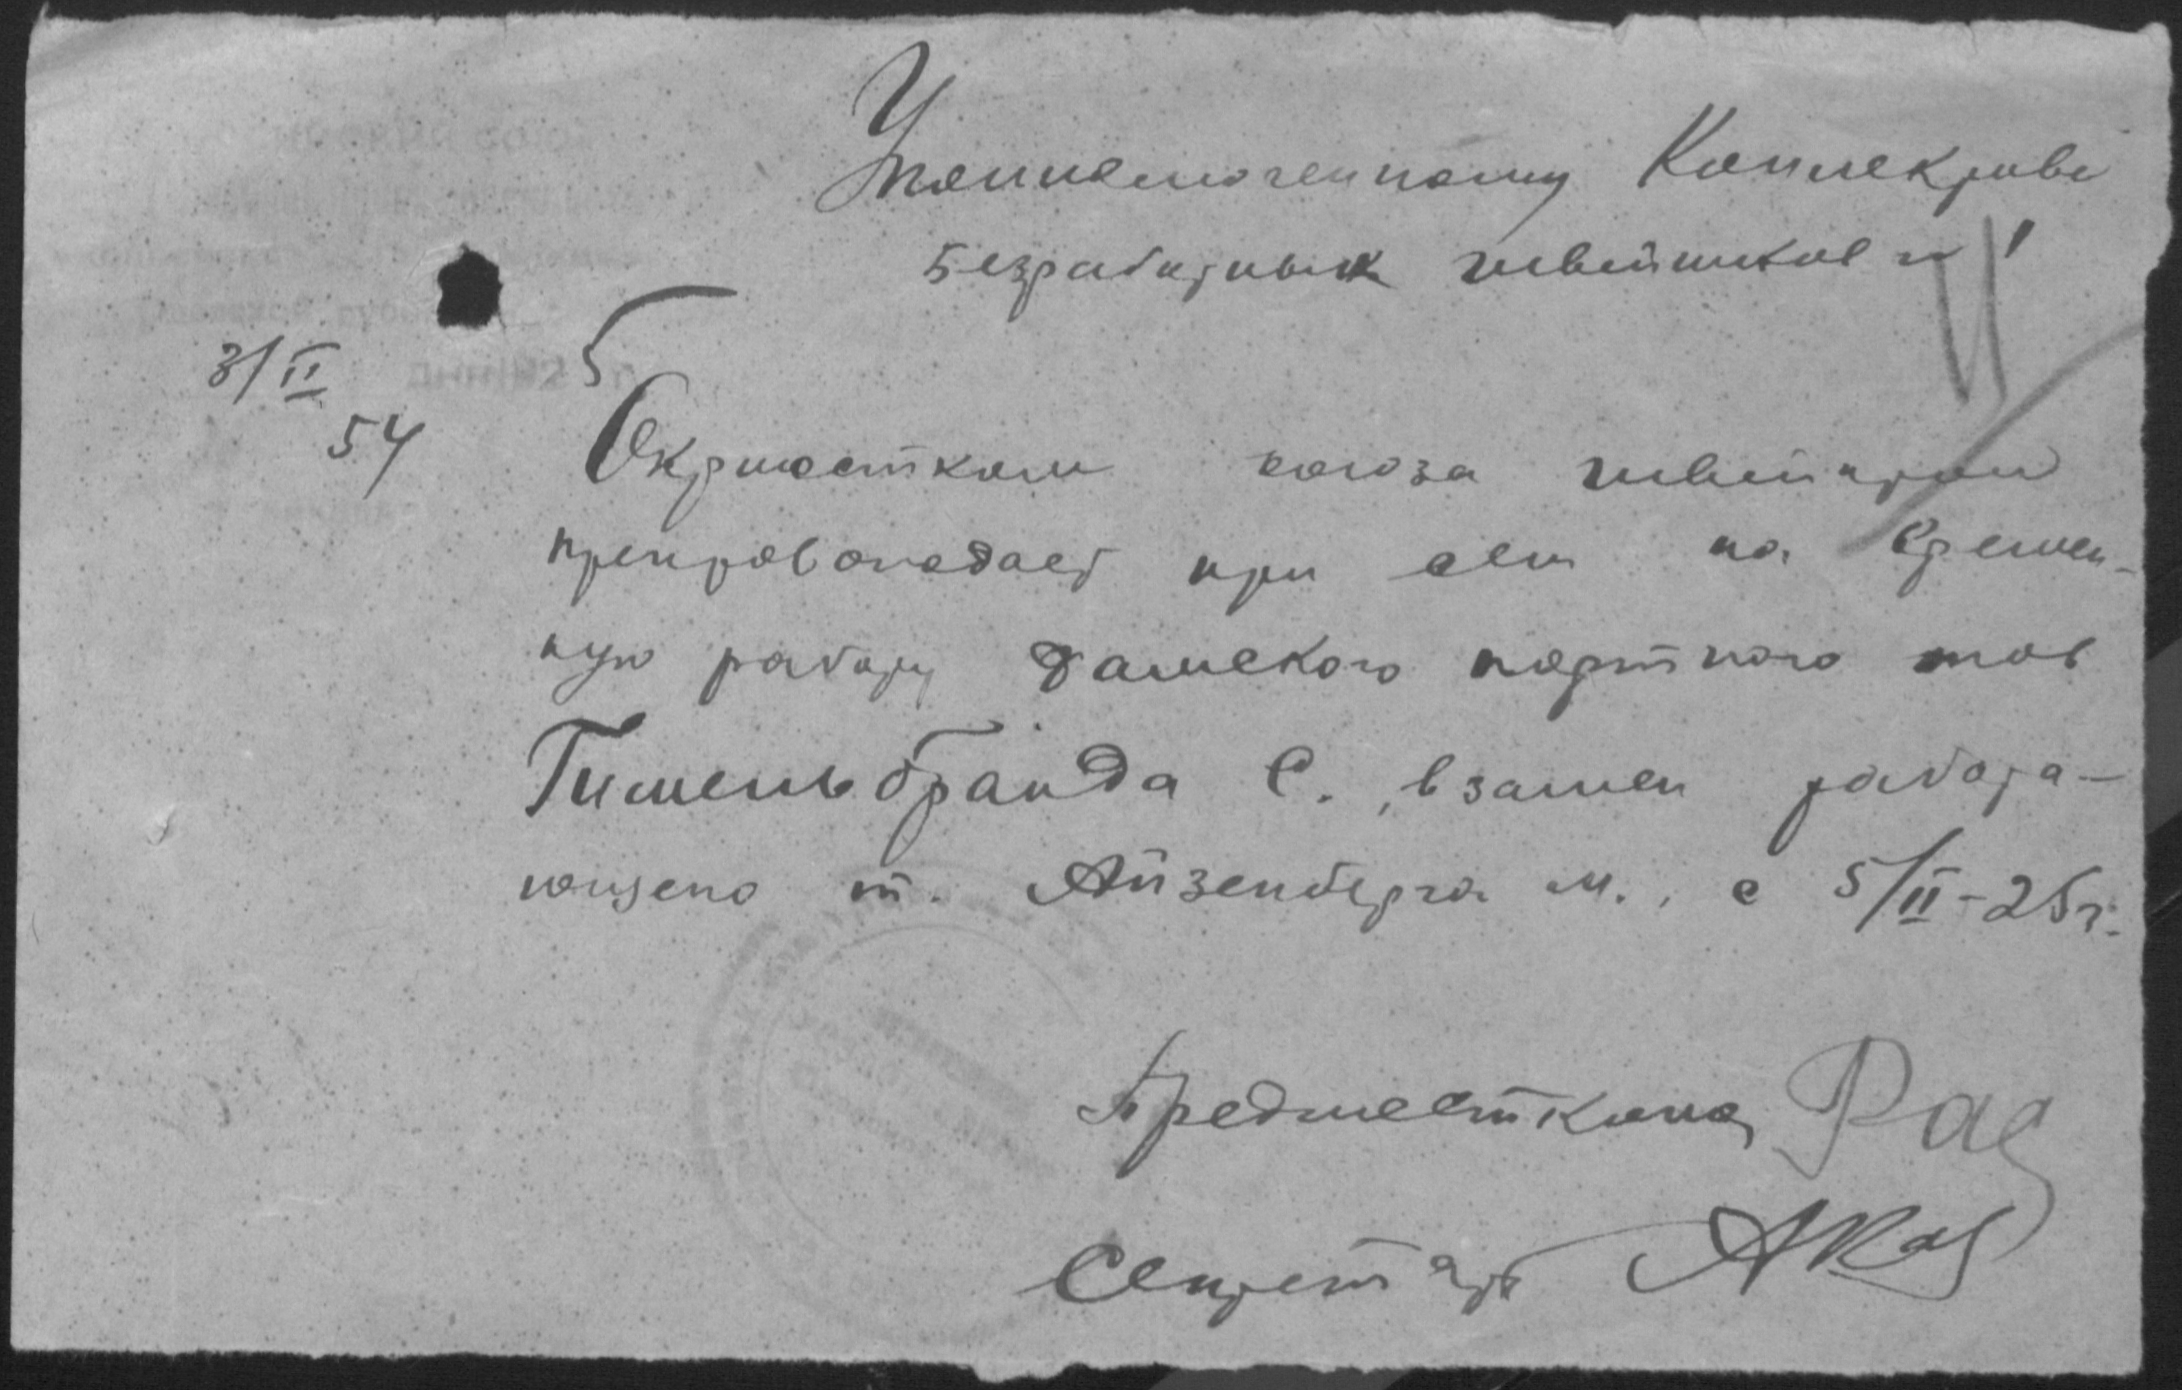 Уполномоченному Коллектива
безработных швейников
3/II
54
Окрместком союза швейпром
препровождает при сем на времен-
ную работу дамского портного тов
Гимельбранда С., взамен работа-
ющего т. Айзенберга М., с 5/II-25г.
Предместкома
Секретарь